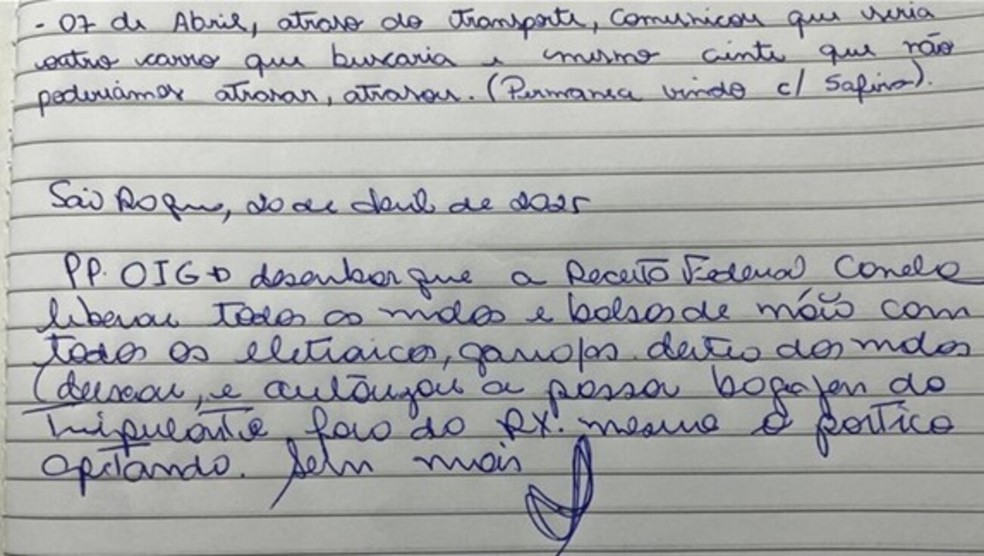 - 07 de Abril, atraso do transporte, comunicou que seria
outro carro que buscaria e mesmo ciente que não
poderiamos atrasar, atrasou. (Permanea vindo c/ Safira).
São Roque, 20 de Abril de 2025
PP. OIG+ desembarque a Receita Federal
liberou todos as malas e bolsas de mão com
todos os eletroicos, garrafas dentro das malas
(deixou, e autorizou a passar bagagen do
tripulante fora do RX. mesmo o portico
apitando. Sem mais